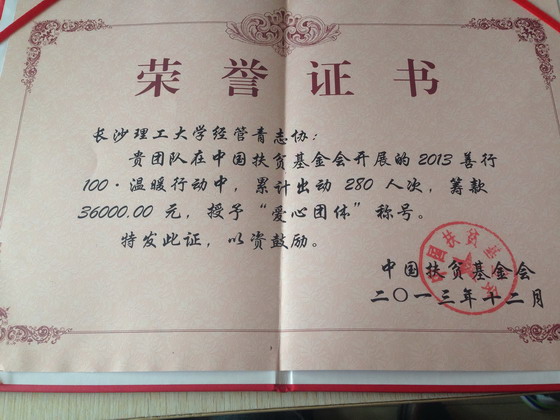 荣誉证书
长沙理工大学经管青志协：
贵团队在中国扶贫基金会开展的2013善行
100·温暖行动中，累计出动280人次，筹款
36000.00元，授予“爱心团体”称号。
特发此证，以资鼓励。
中国扶贫基金会
二〇一三年十二月